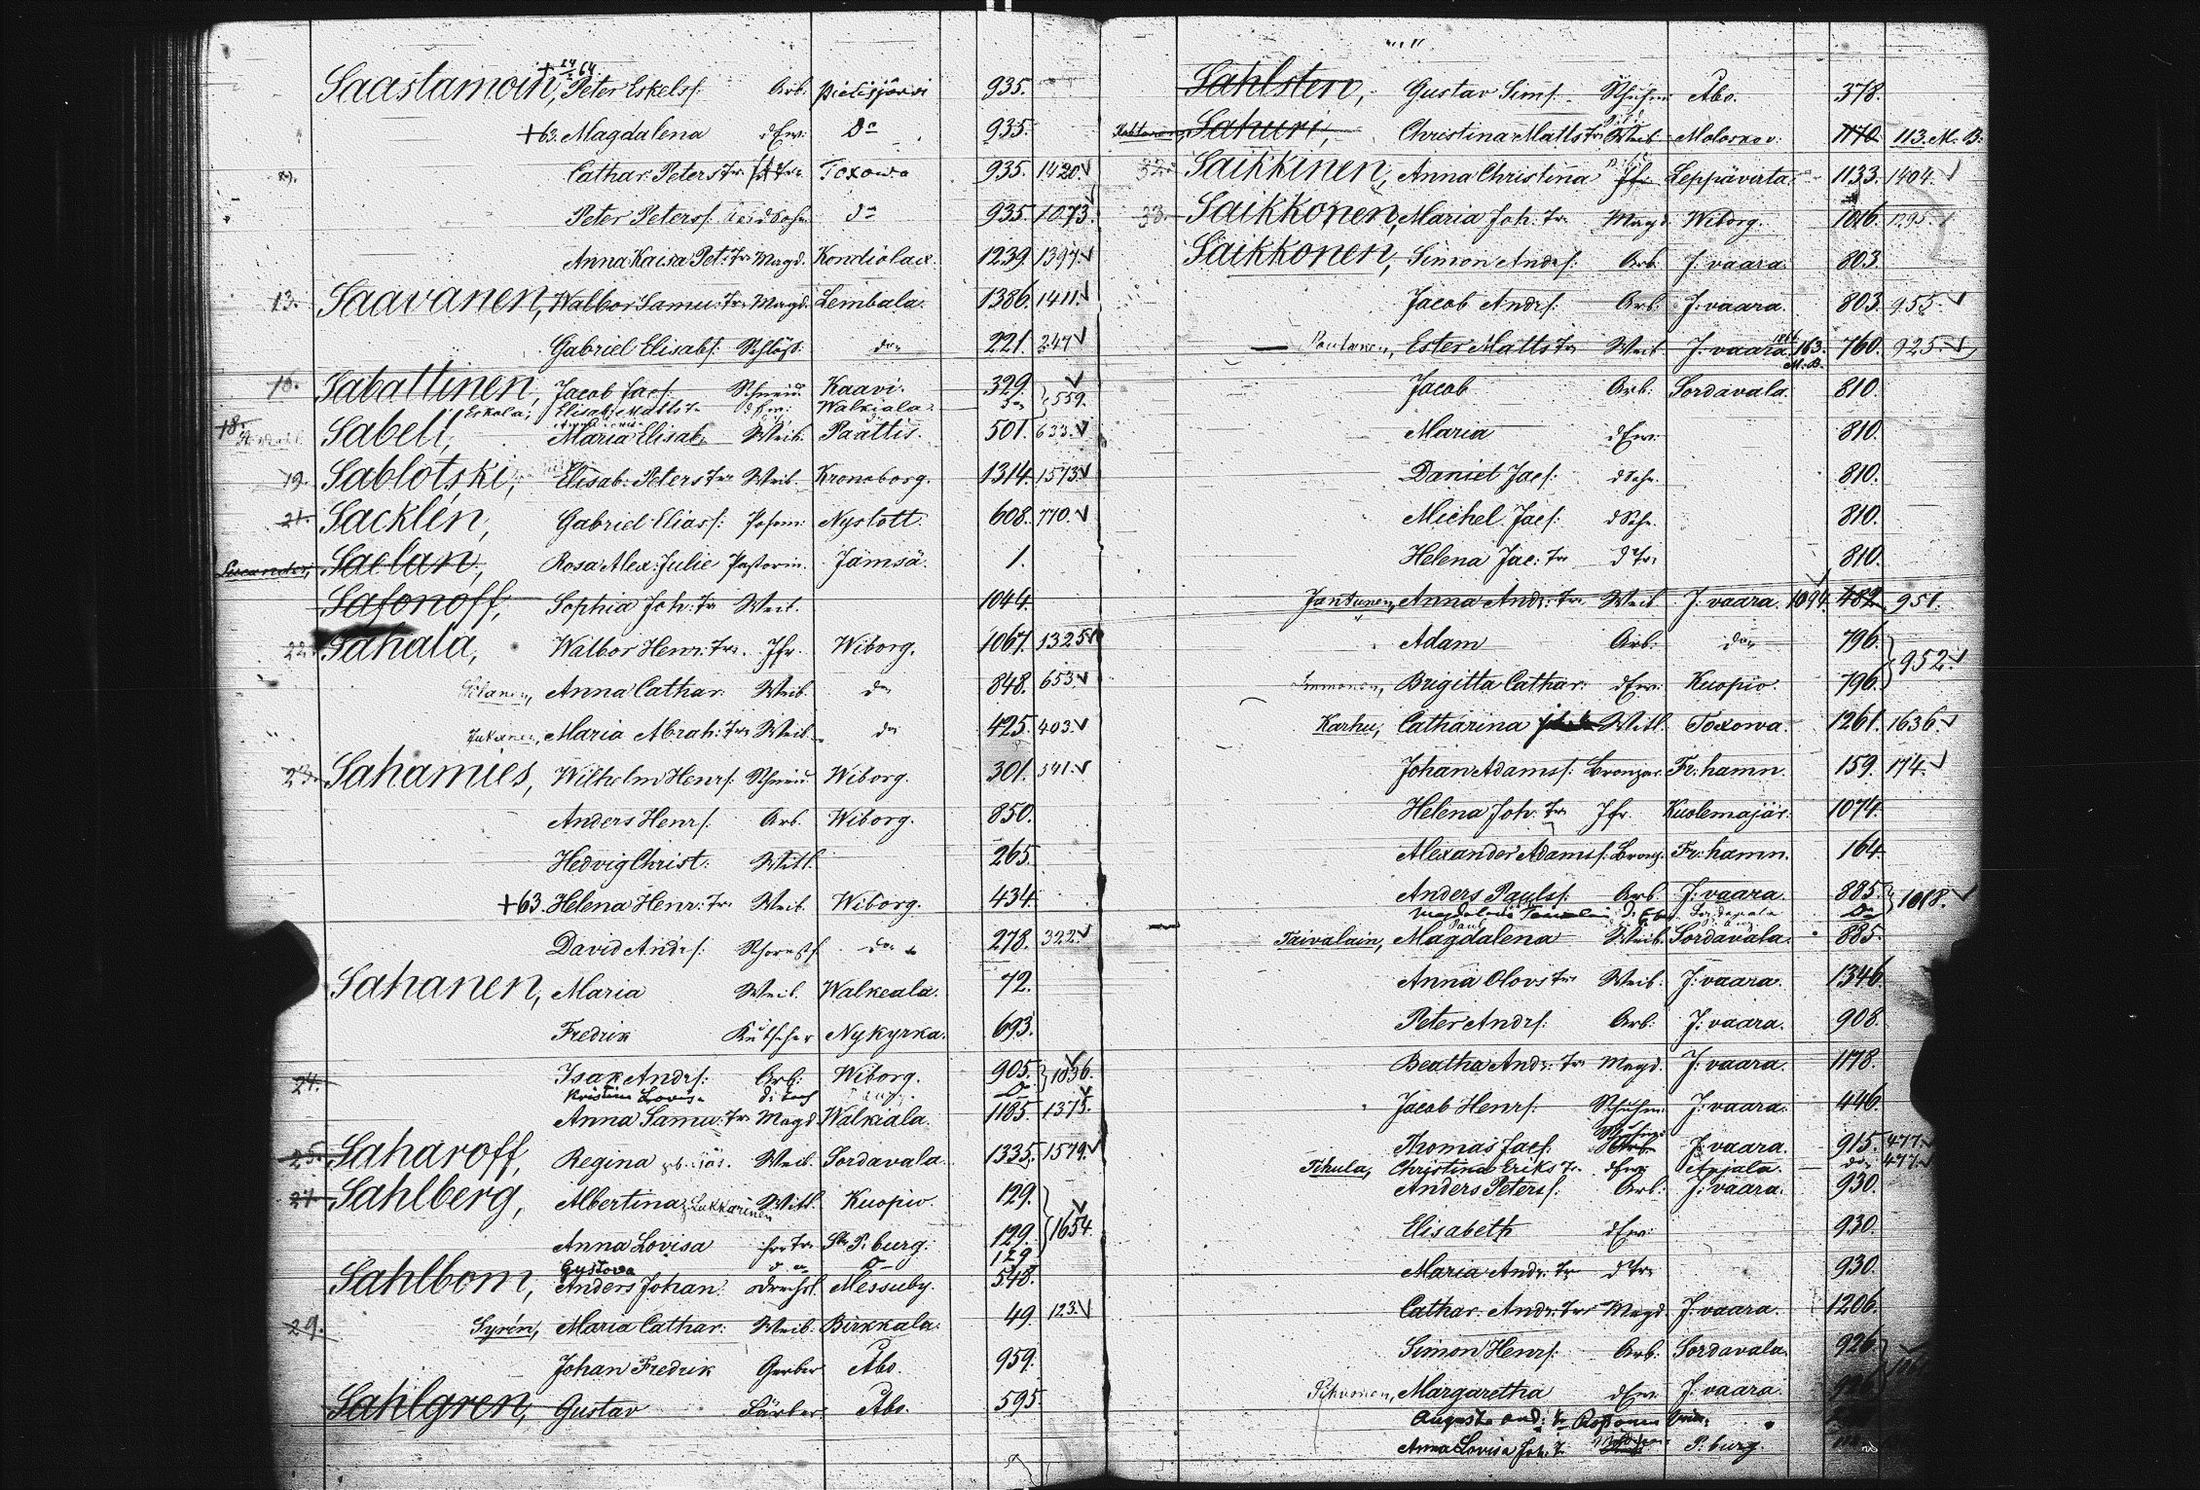 + 24/2 64.
Saastamoin, Peter Eskelsf. Arb. Pielisjärvi 935.
+63. Magdalena dEw. Do 935.
Cathar. Peters Tr. Toxowa 935. 1420.
Peter Petersf. dSohn do 935. 1073.
Anna Kaisa Pet: Tr. Magd. Kondiolax. 1239. 1397.
13. Saavanen, Walbor Samu: Tr. Magd. Lembala. 1386. 1411.
Gabriel Elisabf. do 221. 247
16. Sabattinen, Jacob Jacf. Schneid. Kaavi. 329. 559.
Eskola, Elisab. Matts Tr. dEw. Walkiala. do
18. Sabell, Maria Elisab. Weib. Paattis. 501. 633.
19. Sablotski, Elisab: Peters Tr. Weib. Kronoborg. 1314. 1573.
21. Sacklén, Gabriel Eliasf: Nyslott. 608. 770.
Saelan, Rosa Alex: Julie Pastorin. Jämsä. 1.
Safonoff, Sophia Joh: Tr. Weib. 1044.
22. Sahala, Walbor Henr: Tr. Jfr. Wiborg. 1067. 1325
Anna Cathar: Weib. do 848. 653.
Maria Abrah: Tr. Weib. do 425. 403.
23. Sahamies, Wilhelm Henrf. Schneid. Wiborg. 301. 341.
Anders Henrf. Arb. Wiborg. 850.
Hedvig Christ: Wittl. 265.
+63. Helena Henr: Tr. Weib. Wiborg. 434.
David Andrf: do 278. 322.
Sahanen, Maria Weib. Walkeala. 72.
Fredrik Kutscher Nykyrka. 693.
24. Isak Andrf: Arb: Wiborg. 905. 1036.
Kristina Lovisa
Anna Samu: Tr. Magd. Walkiala. 1185. 1375.
25. Saharoff, Regina Weib. Sordavala. 1335. 1579.
27. Sahlberg, Albertina Lukkarinen Wittl. Kuopio. 129. 1654.
Anna Lovisa St. P. burg. 129.
Gustova do 129
Sahlbom, Anders Johan Messuby. 548.
29. Syrén, Maria Cathar: Weib: Birkkala. 49. 123.
Johan Fredrik Gerber Åbo. 959.
Sahlgren, Gustav Färber Åbo. 595.
Sahlsten, Gustav Simf. Schuhm: Åbo. 378.
Sahuri, Christina Matts Tr. Weib Moloskov. 1170. 113. M. B.
32. Saikkinen, Anna Christina Jfr Leppävirta. 1133. 1404.
33. Saikkonen, Maria Joh. Tr. Magd. Wiborg. 1016. 1295.
Saikkonen, Simon Andrf: Arb: J: vaara. 803.
Jacob Andrf: Arb: J: vaara. 803. 955.
Pentanen, Ester Matts Tr. Weib J: vaara. 163. M. B. 760. 925.
Jacob Arb: Sordavala. 810.
Maria dEw: 810.
Daniel Jacf: dSohn. 810.
Michel Jacf: dSohn. 810.
Helena Jac: Tr. dTr. 810.
Jantunen, Anna Andr: Tr. Weib. J: vaara. 1094. 482. 951.
Adam Arb: do 796. 952.
Immonen, Brigitta Cathar: dEw. Kuopio. 796.
Karhu, Catharina Wittl. Toxowa. 1261. 1636.
Johan Adamsf: Bronzar. Fr: hamn. 159. 174.
Helena Joh. Tr. Jfr. Kuolemajär: 1074.
Alexander Adamsf: Bronz. Fr: hamn. 164
Anders Paulsf. Arb. J: vaara. 885. 1018.
Taivalain, Magdalena Weib. Sordavala. 885.
Anna Olovs Tr. Weib. J: vaara. 1346.
Peter Andrf: Arb: J: vaara. 908.
Beatha Andr: Tr. Magd. J: vaara. 1178.
Jacob Henrf: Schuhm: J: vaara. 446.
Thomas Jacf: Arb. J: vaara. 915. 477.
Tihula, Christina Eriks Tr. dEw. Anjala. do 477.
Anders Petersf: Arb: J: vaara. 930.
Elisabeth dEw: 930.
Maria Andr. Tr. dTr. 930.
Cathar. Andr: Tr. Magd. J: vaara. 1206.
Simon Henrf: Arb: Sordavala. 926.
Pihonen, Margaretha dEw. J: vaara. 926.
Augusta And: Tr.
Anna Lovisa Joh. T. P. burg.